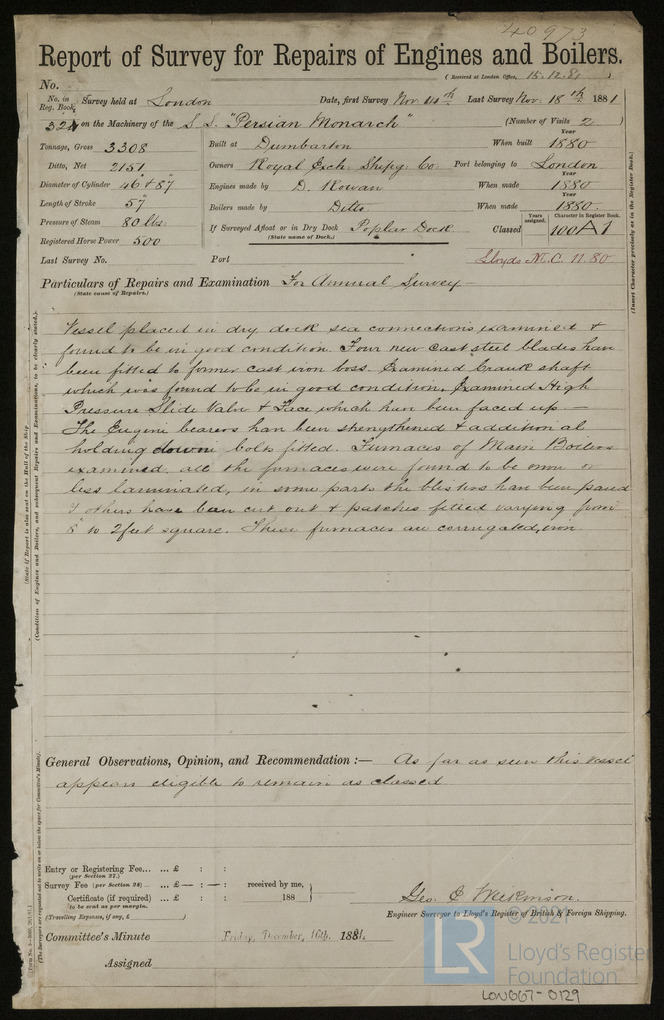 40973
Report of Survey for Repairs of Engines and Boilers.
(Received at London Office, 15.12.81)
No.
No. in Reg. Book. Survey held at London Date, first Survey Nov 14th Last Survey Nov. 18th 1881
324 on the Machinery of the S.S. "Persian Monarch" (Number of Visits 2)
Tonnage, Gross 3308
Ditto, Net 2151
Diameter of Cylinder 46" & 87"
Length of Stroke 57"
Pressure of Steam 80 lbs.
Registered Horse Power 500
Built at Dumbarton When built Year 1880
Owners Royal Exch. Shipg. Co. Port belonging to London
Engines made by D. Rowan When made Year 1880
Boilers made by Ditto When made Year 1880
If Surveyed Afloat or in Dry Dock Poplar Dock
(State name of Dock.)
Classed Years assigned. Character in Register Book. 100A1
Last Survey No. Port Lloyds M.C. 11.80
Particulars of Repairs and Examination For Annual Survey
(State cause of Repairs.)
Vessel placed in dry dock sea connections examined &
found to be in good condition. Four new cast steel blades have
been fitted to former cast iron boss. Examined Crank shaft
which was found to be in good condition. Examined High
Pressure Slide Valve & Face which have been faced up —
The Engine bearers have been strengthened & additional
holding down bolts fitted. Furnaces of Main Boilers
examined. all the furnaces were found to be more or
less laminated, in some parts the blisters have been pared
& others have been cut out & patches fitted varying from
to 2 feet square. These furnaces are corrugated, iron
General Observations, Opinion, and Recommendation :— As far as seen this vessel
appears eligible to remain as classed
Entry or Registering Fee... ... £ : :
(per Section 27.)
Survey Fee (per Section 28) ... ... £ — : — :
Certificate (if required) ... £ : :
(to be sent as per margin.
(Travelling Expenses, if any, £ )
received by me,
188
Geo. C Wilkinson.
Engineer Surveyor to Lloyd's Register of British & Foreign Shipping.
Committee's Minute Friday, December, 16th. 1881.
Assigned
(State if Report is also sent on the Hull of the Ship.
(Condition of Engines and Boilers, and subsequent Repairs and Examinations, to be clearly stated.)
(Insert Character precisely as in the Register Book.)
(The Surveyors are requested not to write on or below the space for Committee's Minute).
© 2021
LR
Lloyd's Register
Foundation
LON667-0129